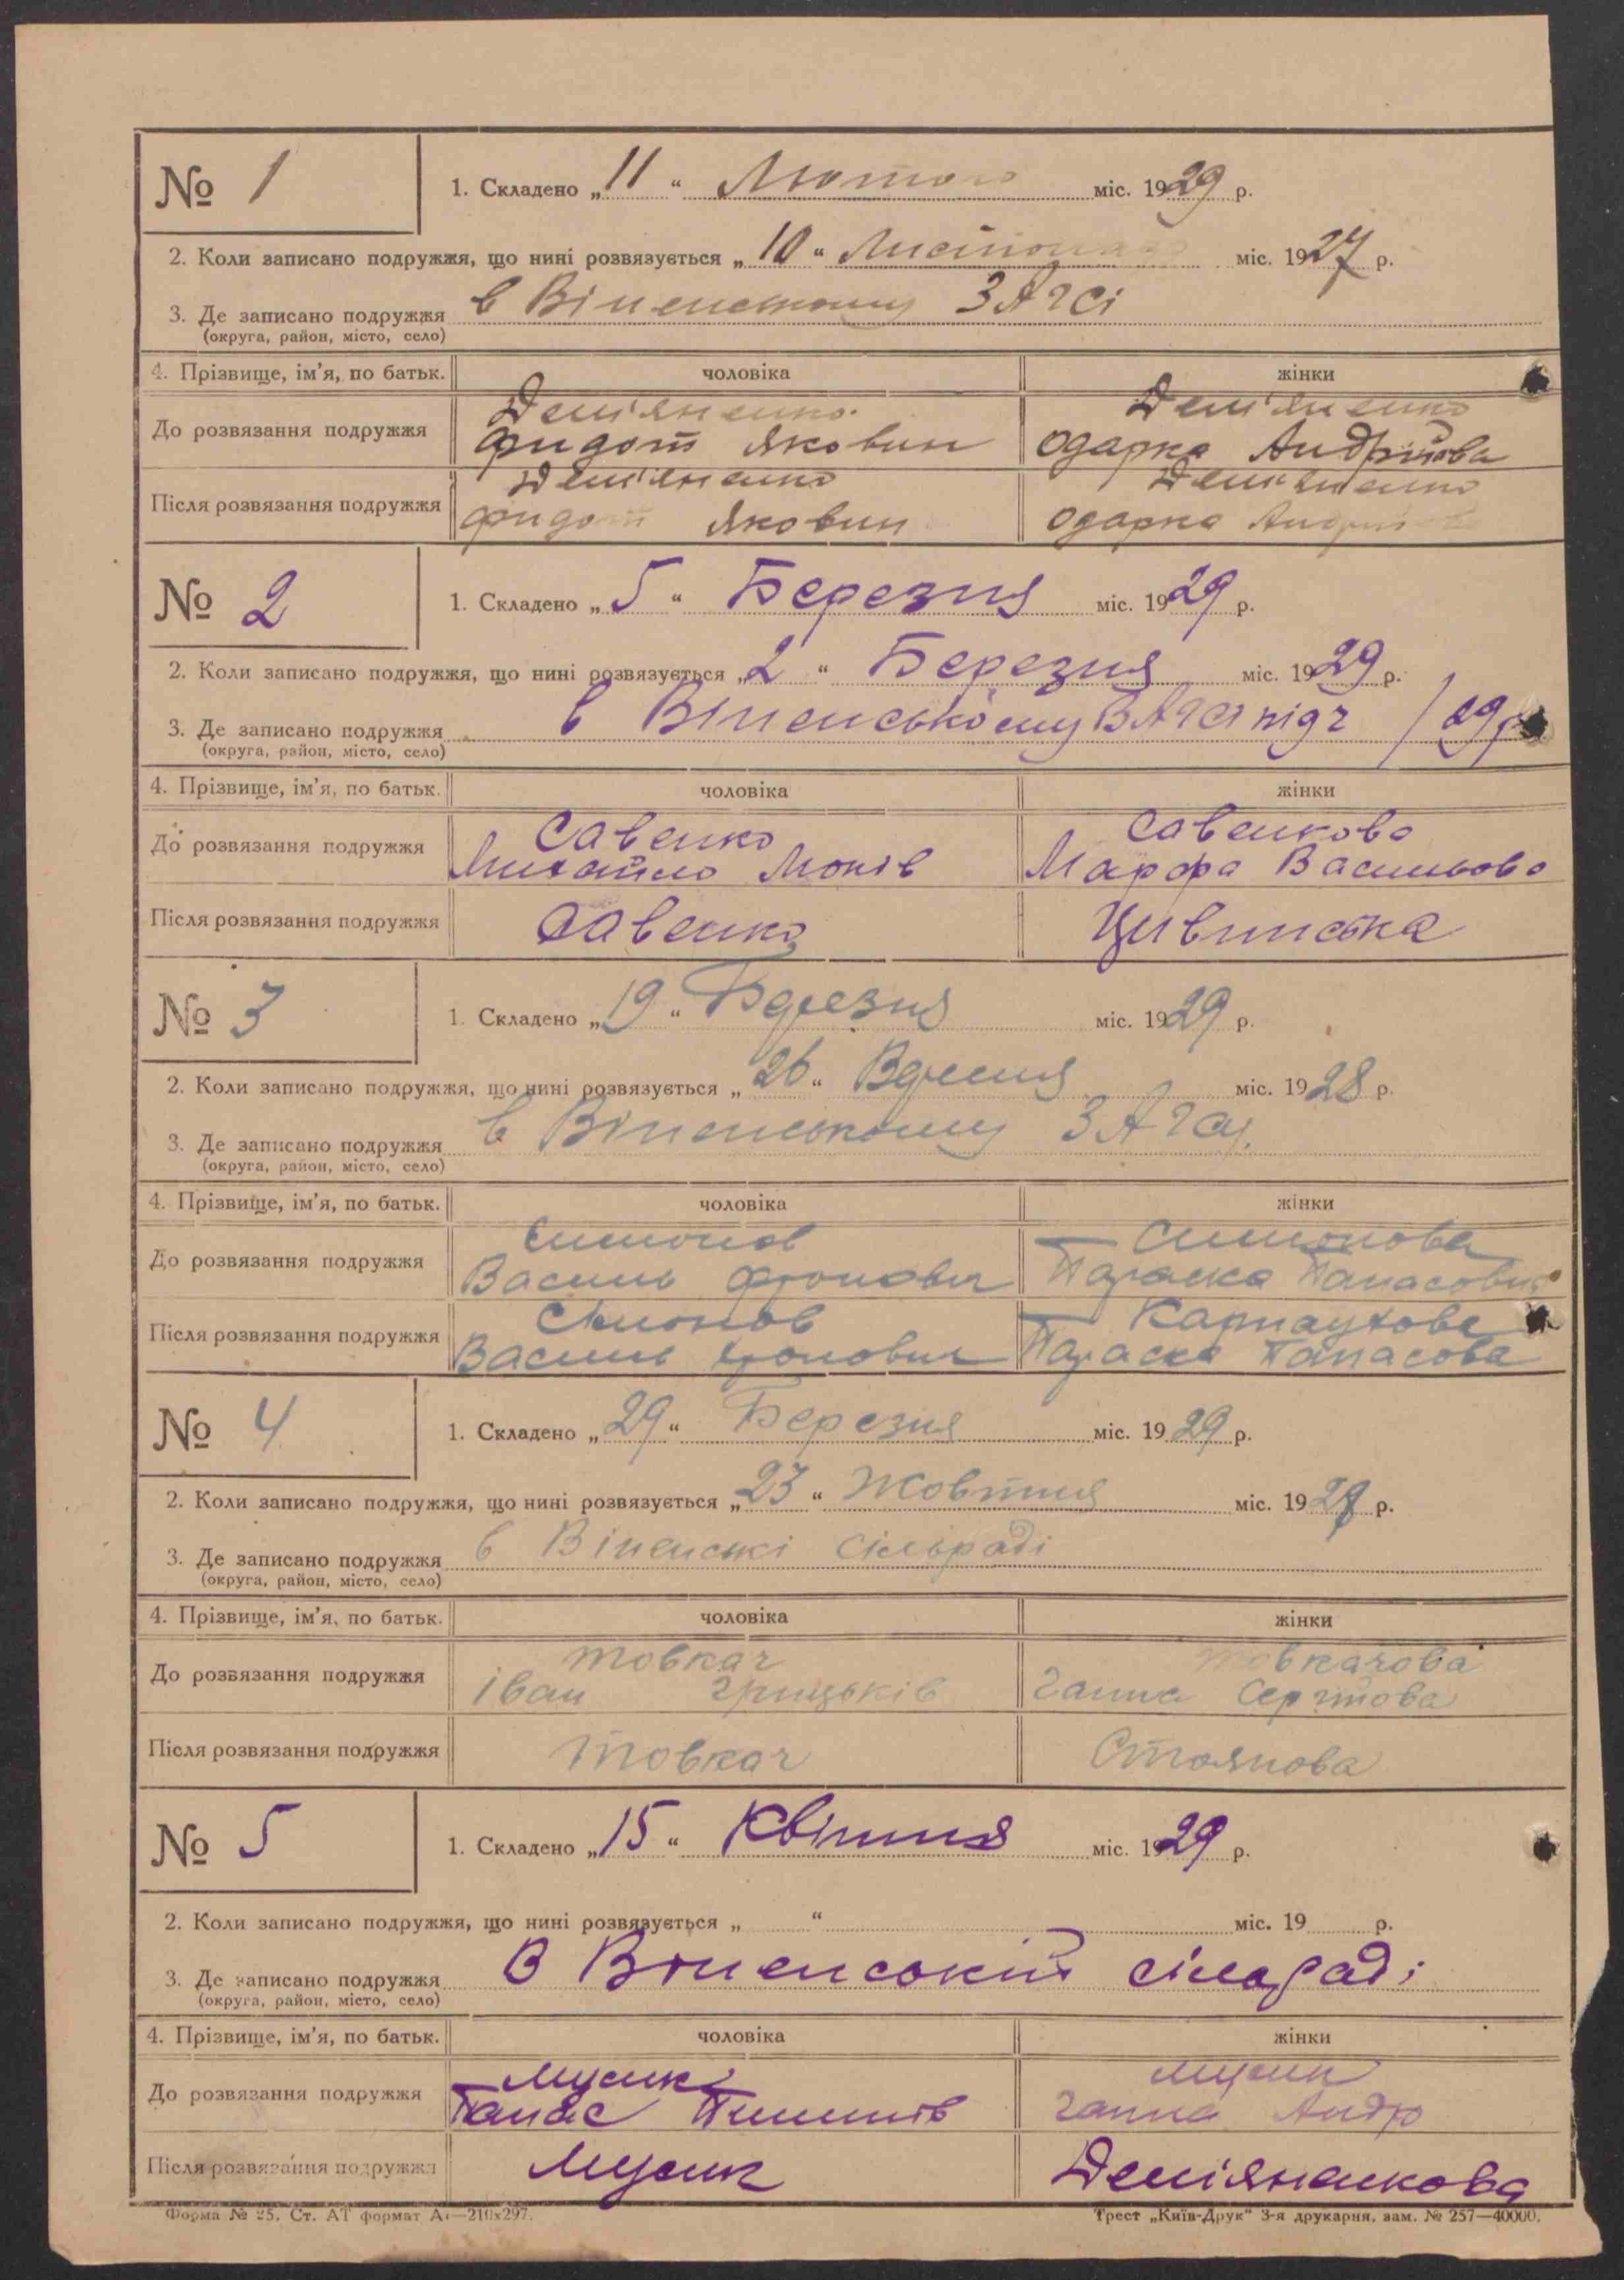 № 1
1. Складено „11“ Лютого міс. 1929 р.
2. Коли записано подружжя, що нині розвязується „10“ Листопада міс. 1927 р.
3. Де записано подружжя в Віненському ЗАГСі
(округа, район, місто, село)
4. Прізвище, ім’я, по батьк. чоловіка жінки
До розвязання подружжя Дем'яненко Дем'яненко
Фидот Яковин Одарка Андріївва
Після розвязання подружжя Дем'яненко Дем'яненко
Фидот Яковин Одарка
№ 2
1. Складено „5“ Березня міс. 1929 р.
2. Коли записано подружжя, що нині розвязується „2“ Березня міс. 1929 р.
3. Де записано подружжя в Віненському ЗАГСі під ч / 29 р
(округа, район, місто, село)
4. Прізвище, ім’я, по батьк. чоловіка жінки
До розвязання подружжя Савенко Савенкова
Михайло Моків Марфа Васильова
Після розвязання подружжя Савенко Цивинська
№ 3
1. Складено „19“ Березня міс. 1929 р.
2. Коли записано подружжя, що нині розвязується „26“ Вересня міс. 1928 р.
3. Де записано подружжя в Віненському ЗАГСу.
(округа, район, місто, село)
4. Прізвище, ім’я, по батьк. чоловіка жінки
До розвязання подружжя Симонов Симонова
Василь Фронович Параска Панасовна
Після розвязання подружжя Симонов Карнаухова
Василь Фронович Параска Панасова
№ 4
1. Складено „29“ Березня міс. 1929 р.
2. Коли записано подружжя, що нині розвязується „23“ Жовтня міс. 1927 р.
3. Де записано подружжя в Віненскі сільраді
(округа, район, місто, село)
4. Прізвище, ім’я, по батьк. чоловіка жінки
До розвязання подружжя Товкач Товкачова
Іван Грицьків Ганна Сергіїова
Після розвязання подружжя Товкач Стоянова
№ 5
1. Складено „15“ Квітня міс. 1929 р.
2. Коли записано подружжя, що нині розвязується „ “ міс. 19 р.
3. Де записано подружжя В Віненській сільраді
(округа, район, місто, село)
4. Прізвище, ім’я, по батьк. чоловіка жінки
До розвязання подружжя Мусик Мусик
Панас Пилипів Ганна Андр
Після розвязання подружжя Мусик Демі'яненкова
Форма № 25. Ст. АТ формат А4—210х297. Трест „Київ-Друк“ 3-я друкарня, зам. № 257—40000.